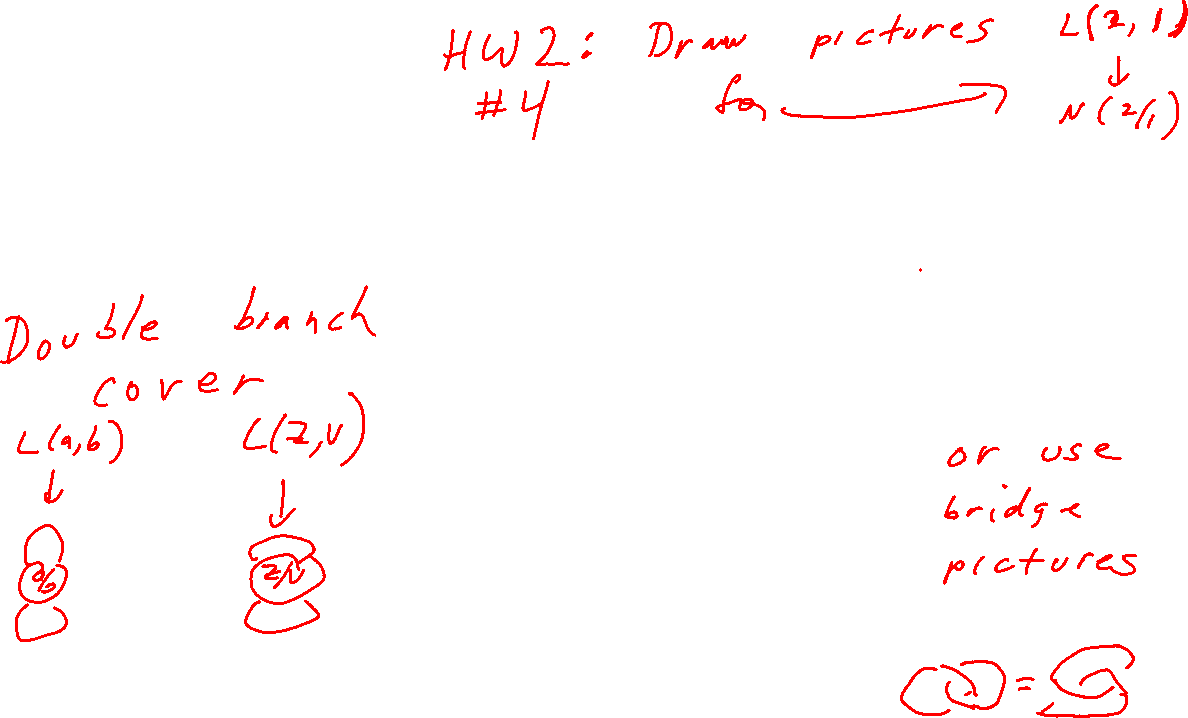 HW2: Draw pictures L(2,1)
↓
#4 for → N(2/1)
Double branch
cover
L(a,b) L(z,v)
↓ ↓
a/b z/v
or use
bridge
pictures
=